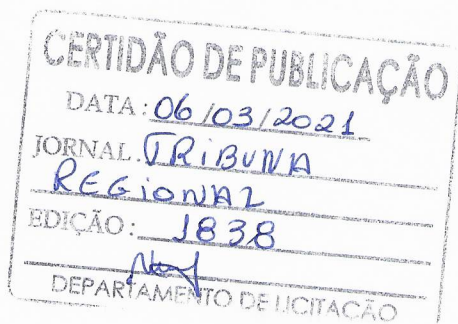 CERTIDÃO DE PUBLICAÇÃO
DATA: 06/03/2021
JORNAL. TRiBUNA
REGiONAL
EDIÇÃO: 1838
DEPARTAMENTO DE LICITAÇÃO